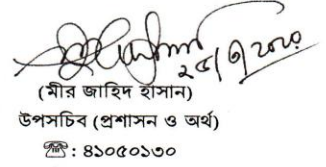 (মীর জাহিদ হাসান)
উপসচিব (প্রশাসন ও অর্থ)
☎: ৪১০৫০১৩০